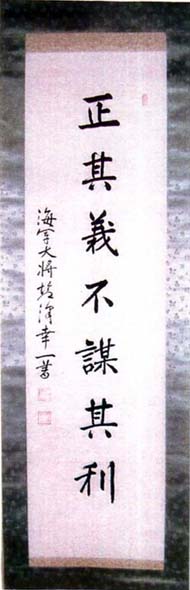 正其義不謀其利
海軍大將塩澤幸一書